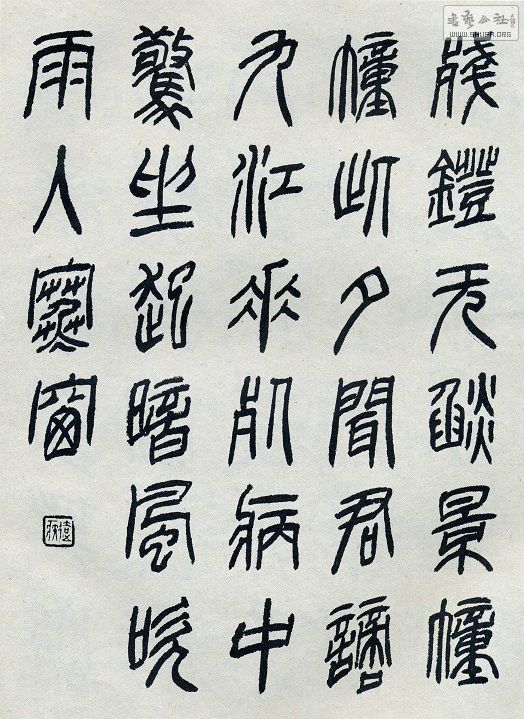 殘鐙无燄景幢
幢此夕聞君謫
九江垂死病中
驚坐起暗風吹
雨入寒窗
书艺公社
WWW.SHUFA.ORG